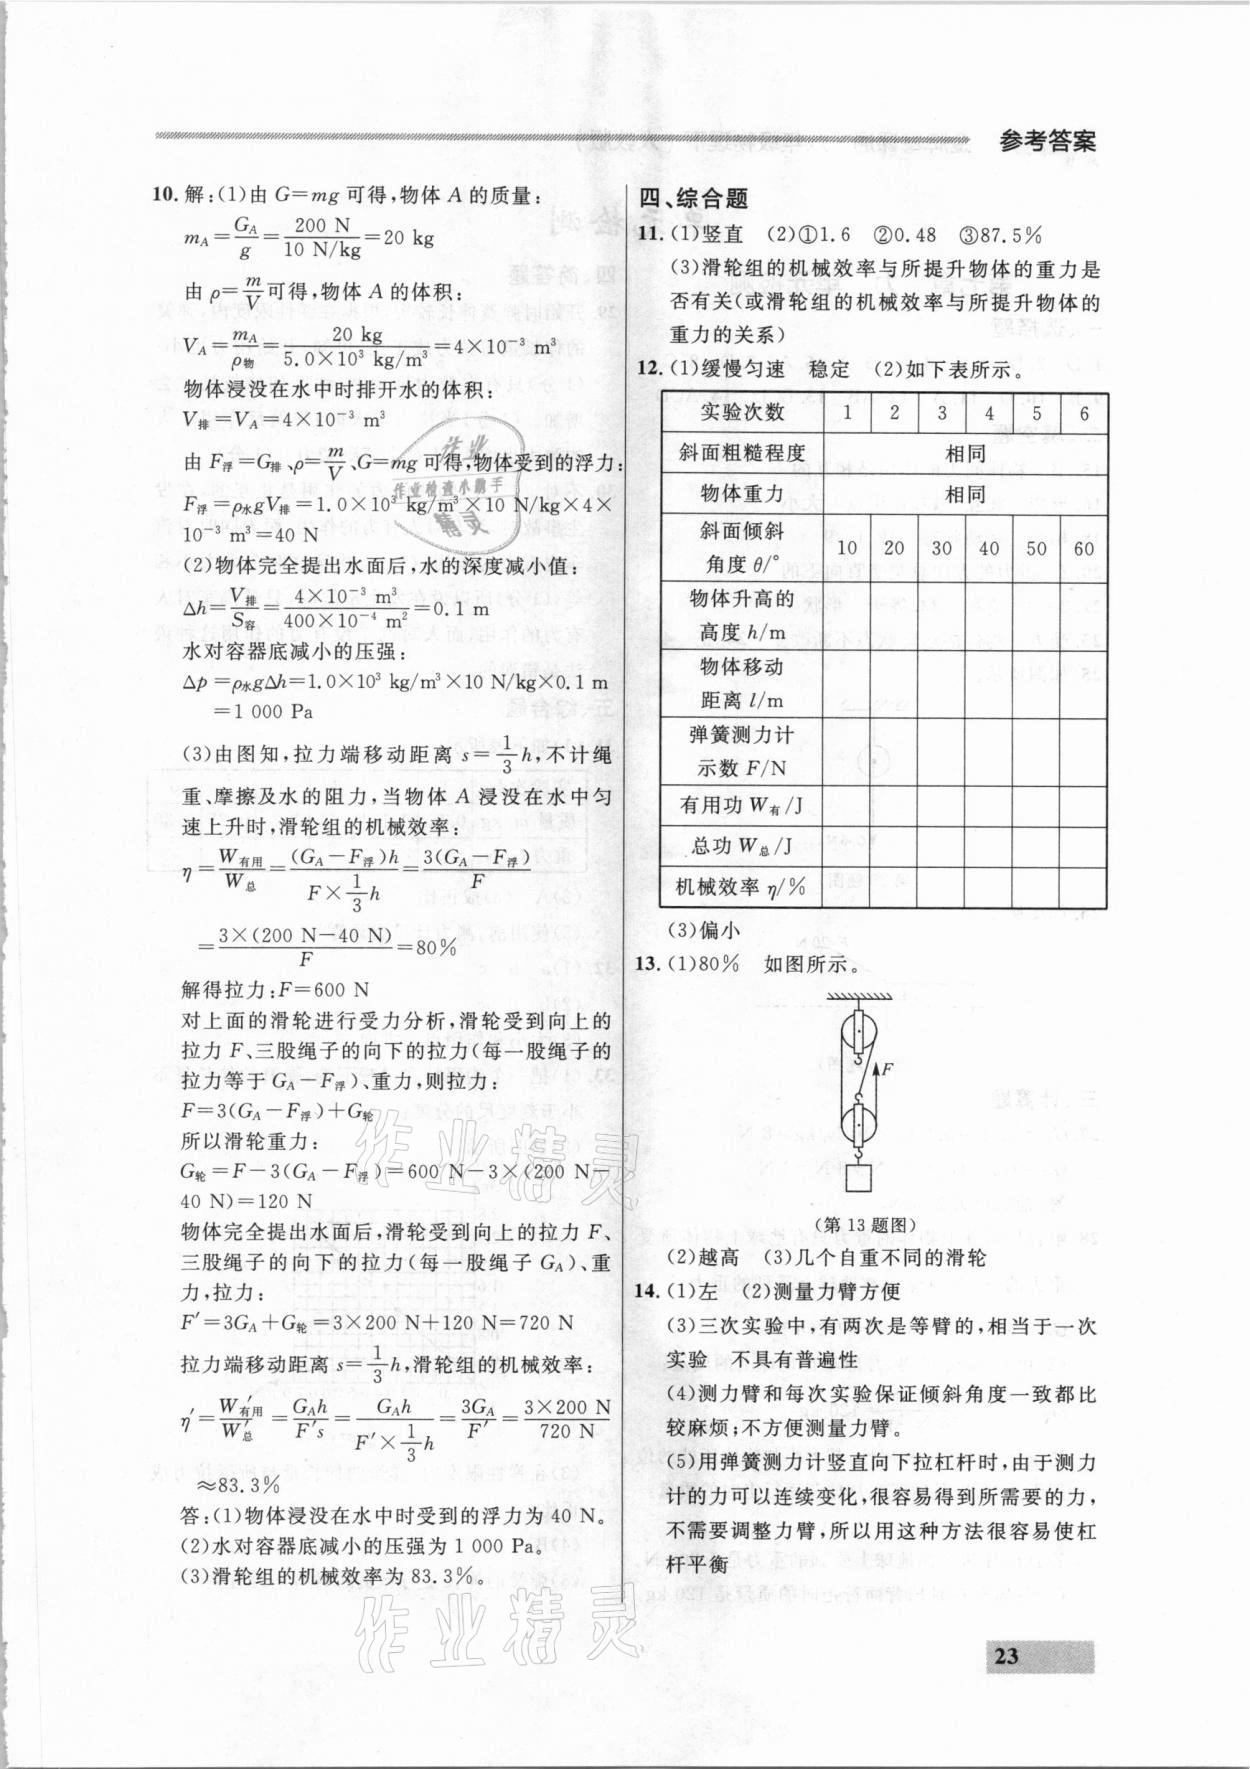 参考答案
10. 解:(1)由 G=mg 可得,物体 A 的质量:
m_A=G_A/g=200 N/10 N/kg=20 kg
由 ρ=m/V可得,物体 A 的体积:
V_A=m_A/ρ物=20 kg/5.0×10³ kg/m³=4×10⁻³ m³
物体浸没在水中时排开水的体积:
V排=V_A=4×10⁻³ m³
由 F浮=G排、ρ=m/V、G=mg 可得,物体受到的浮力:
F浮=ρ水gV排=1.0×10³ kg/m³×10 N/kg×4×
10⁻³ m³=40 N
(2)物体完全提出水面后,水的深度减小值:
Δh=V排/S容=4×10⁻³ m³/400×10⁻⁴ m²=0.1 m
水对容器底减小的压强:
Δp=ρ水gΔh=1.0×10³ kg/m³×10 N/kg×0.1 m
=1 000 Pa
(3)由图知,拉力端移动距离 s=1/3h,不计绳
重、摩擦及水的阻力,当物体 A 浸没在水中匀
速上升时,滑轮组的机械效率:
η=W有用/W总=(G_A-F浮)h/F×1/3h=3(G_A-F浮)/F
=3×(200 N-40 N)/F=80%
解得拉力:F=600 N
对上面的滑轮进行受力分析,滑轮受到向上的
拉力 F、三股绳子的向下的拉力(每一股绳子的
拉力等于 G_A-F浮)、重力,则拉力:
F=3(G_A-F浮)+G轮
所以滑轮重力:
G轮=F-3(G_A-F浮)=600 N-3×(200 N-
40 N)=120 N
物体完全提出水面后,滑轮受到向上的拉力 F、
三股绳子的向下的拉力(每一股绳子 G_A)、重
力,拉力:
F′=3G_A+G轮=3×200 N+120 N=720 N
拉力端移动距离 s=1/3h,滑轮组的机械效率:
η′=W有用′/W总′=G_Ah/F′s=G_Ah/F′×1/3h=3G_A/F′=3×200 N/720 N
≈83.3%
答:(1)物体浸没在水中时受到的浮力为 40 N。
(2)水对容器底减小的压强为 1 000 Pa。
(3)滑轮组的机械效率为 83.3%。
四、综合题
11. (1)竖直 (2)①1.6 ②0.48 ③87.5%
(3)滑轮组的机械效率与所提升物体的重力是
否有关(或滑轮组的机械效率与所提升物体的
重力的关系)
12. (1)缓慢匀速 稳定 (2)如下表所示。
实验次数 1 2 3 4 5 6
斜面粗糙程度 相同
物体重力 相同
斜面倾斜
角度 θ/° 10 20 30 40 50 60
物体升高的
高度 h/m
物体移动
距离 l/m
弹簧测力计
示数 F/N
有用功 W有/J
总功 W总/J
机械效率 η/%
(3)偏小
13. (1)80% 如图所示。
F
(第 13 题图)
(2)越高 (3)几个自重不同的滑轮
14. (1)左 (2)测量力臂方便
(3)三次实验中,有两次是等臂的,相当于一次
实验 不具有普遍性
(4)测力臂和每次实验保证倾斜角度一致都比
较麻烦;不方便测量力臂。
(5)用弹簧测力计竖直向下拉杠杆时,由于测力
计的力可以连续变化,很容易得到所需要的力,
不需要调整力臂,所以用这种方法很容易使杠
杆平衡
23
作业
作业检查小助手
精灵
作业精灵
作业精灵